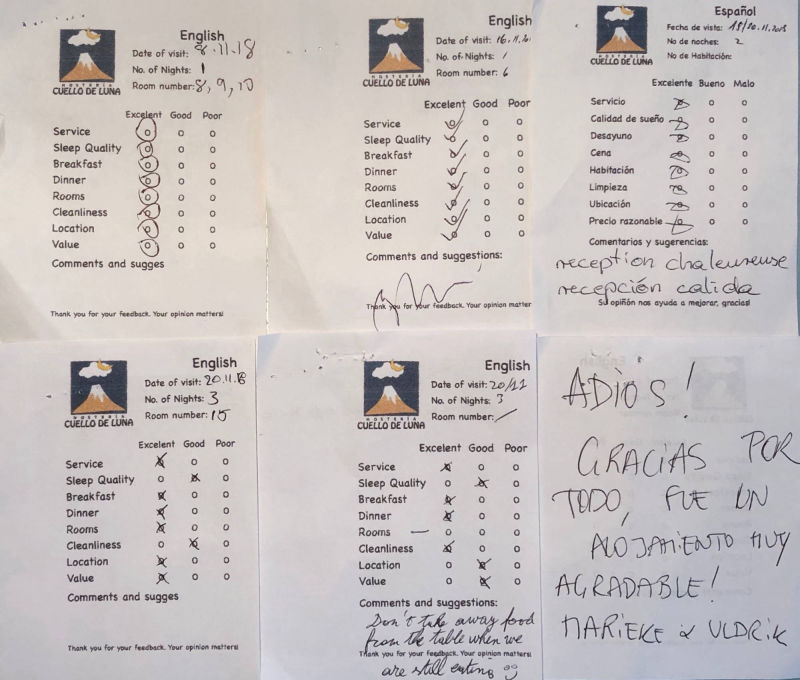 English
HOSTERÍA
CUELLO DE LUNA
Date of visit: 8.11.18
No. of Nights: 1
Room number: 8, 9, 10
Excelent Good Poor
Service
Sleep Quality
Breakfast
Dinner
Rooms
Cleanliness
Location
Value
Comments and sugges
Thank you for your feedback. Your opinion matters!
English
HOSTERÍA
CUELLO DE LUNA
Date of visit: 16.11.201
No. of Nights: 1
Room number: 6
Excelent Good Poor
Service
Sleep Quality
Breakfast
Dinner
Rooms
Cleanliness
Location
Value
Comments and suggestions:
Thank you for your feedback. Your opinion matter
Español
HOSTERÍA
CUELLO DE LUNA
Fecha de vista:
No de noches: 2
No de Habitación:
Excelente Bueno Malo
Servicio
Calidad de sueño
Desayuno
Cena
Habitación
Limpieza
Ubicación
Precio razonable
Comentarios y sugerencias:
reception chaleureuse
recepción calida
Su opiñón nos ayuda a mejorar, gracias!
English
HOSTERÍA
CUELLO DE LUNA
Date of visit: 20.11.18
No. of Nights: 3
Room number: 15
Excelent Good Poor
Service
Sleep Quality
Breakfast
Dinner
Rooms
Cleanliness
Location
Value
Comments and sugges
Thank you for your feedback. Your opinion matters!
English
HOSTERÍA
CUELLO DE LUNA
Date of visit: 20/11
No. of Nights: 3
Room number: /
Excelent Good Poor
Service
Sleep Quality
Breakfast
Dinner
Rooms —
Cleanliness
Location
Value
Comments and suggestions:
Don't take away food
from the table when we
Thank you for your feedback. Your opinion matters!
are still eating
ADIOS!
GRACIAS POR
TODO, FUE UN
ALOJAMIENTO MUY
AGRADABLE!
MARIEKE & ULDRIK